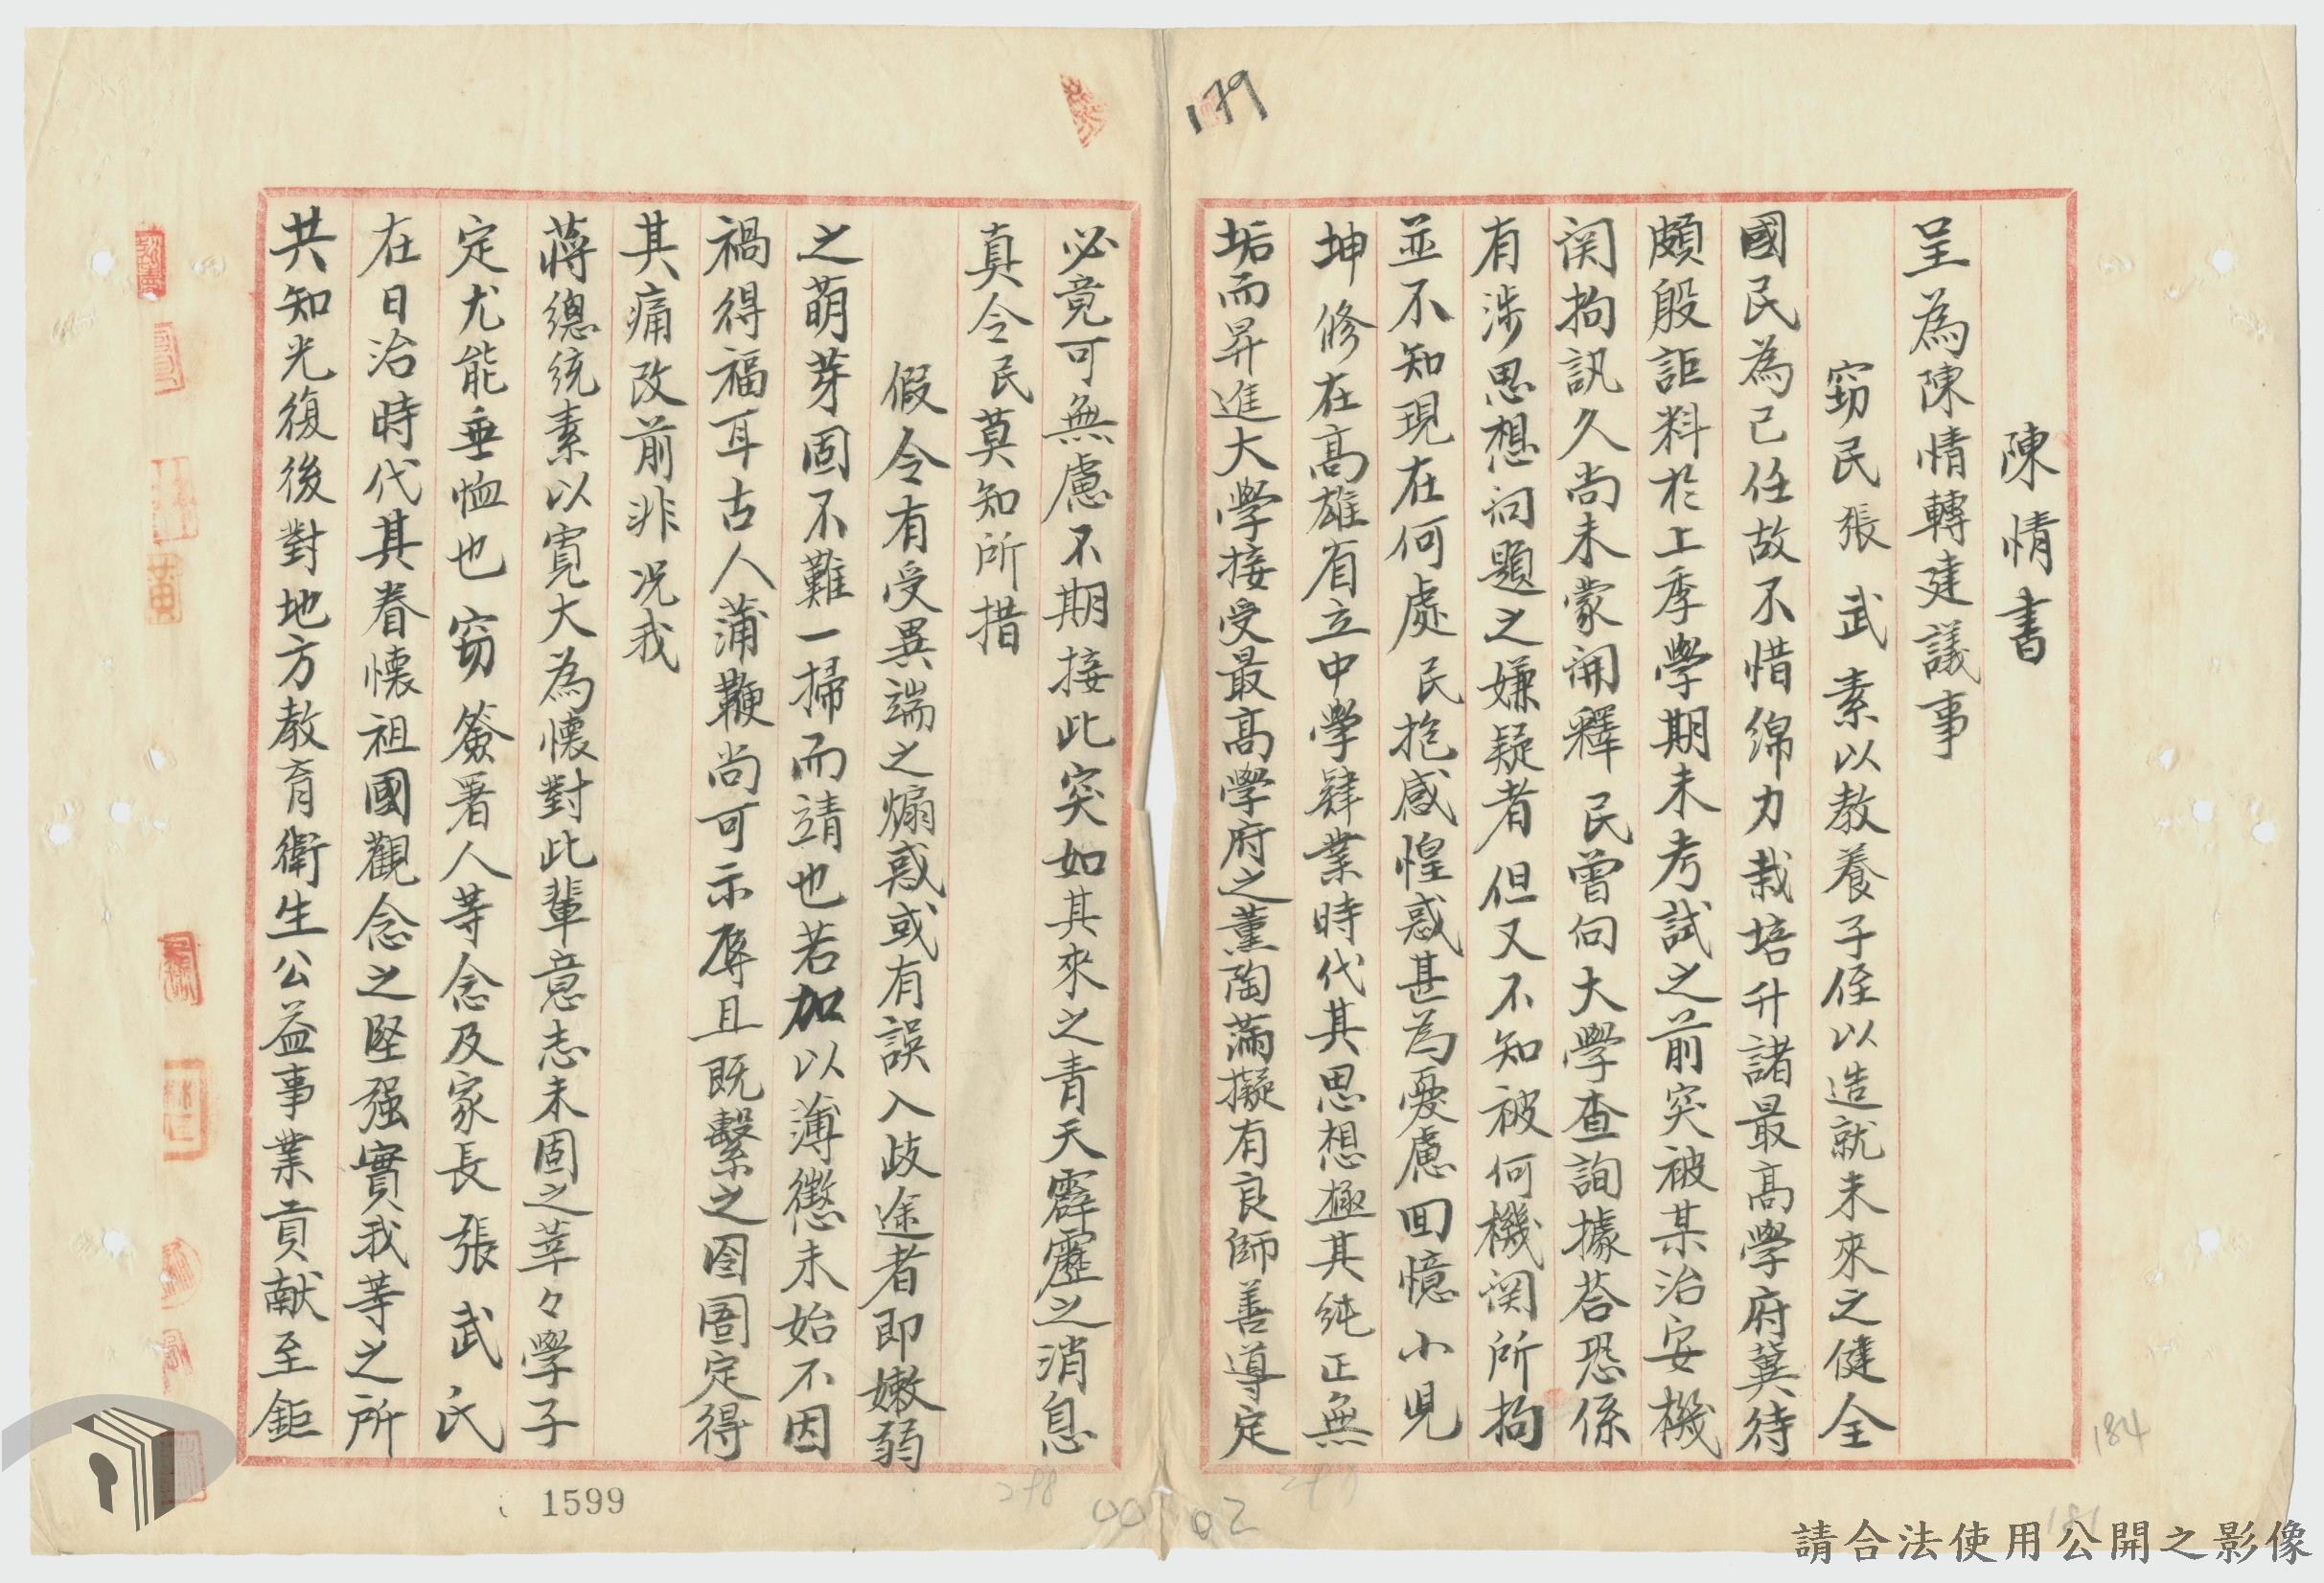 陳情書
呈為陳情轉建議事
竊民張武素以教養子侄以造就未來之健全
國民為己任故不惜綿力栽培升諸最高學府冀待
頗殷詎料於上季學期未考試之前突被某治安機
関拘訊久尚未蒙開釋民曾向大學查詢據荅恐係
有涉思想问題之嫌疑者但又不知被何機関所拘
並不知現在何處民抱感惶惑甚為憂慮回憶小兒
坤修在高雄省立中學肄業時代其思想極其純正無
垢而昇進大學接受最高學府之薰陶滿擬有良師善導定
必竟可無慮不期接此突如其來之青天霹靂之消息
真令民莫知所措
假令有受異端之煽惑或有誤入歧途者即嫩弱
之萌芽固不難一掃而靖也若加以薄懲未始不因
禍得福耳古人蒲鞭尚可示辱且既繫之囹圄定得
其痛改前非况我
蔣總統素以寬大為懷對此輩意志未固之莘々學子
定尤能垂恤也窃簽署人等念及家長張武氏
在日治時代其眷懷祖國觀念之堅强實我等之所
共知光復後對地方教育衛生公益事業貢献至鉅
179
184
181
278
00102
1599
請合法使用公開之影像